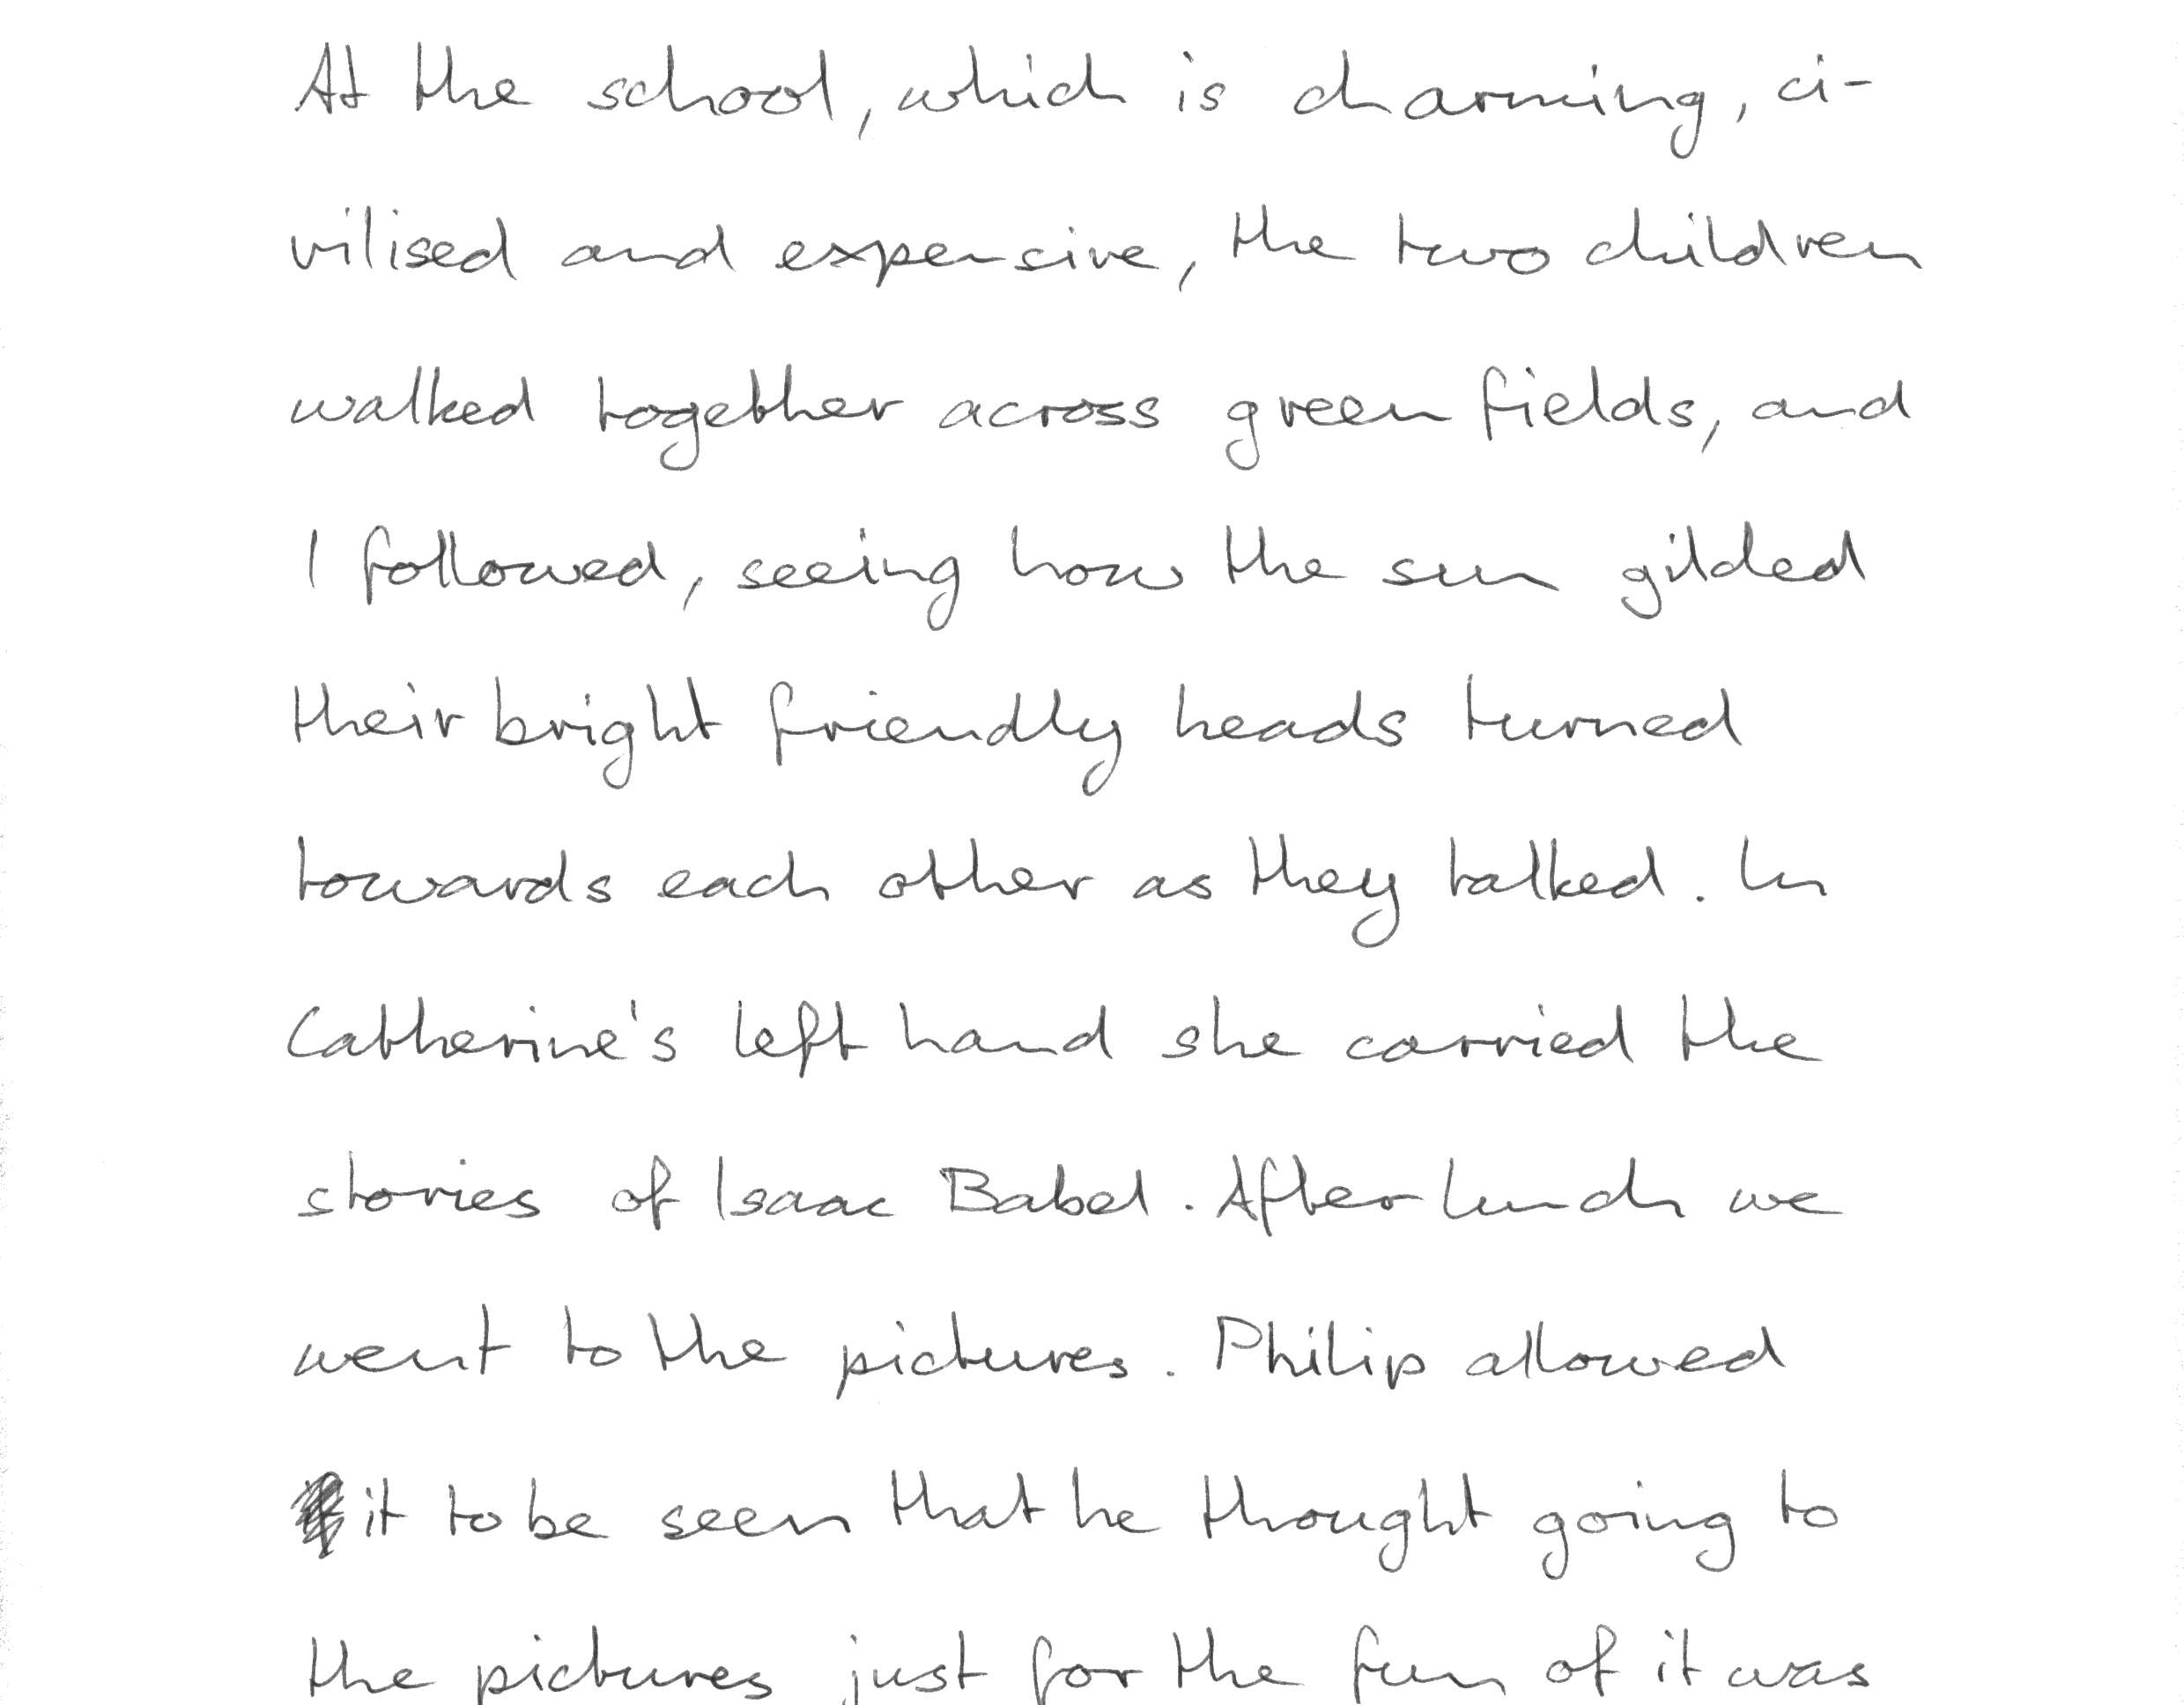 At the school, which is charming, ci-
vilised and expensive, the two children
walked together across green fields, and
I followed, seeing how the sun gilded
their bright friendly heads turned
towards each other as they talked. In
Catherine's left hand she carried the
stories of Isaac Babel. After lunch we
went to the pictures. Philip allowed
it to be seen that he thought going to
the pictures just for the fun of it was